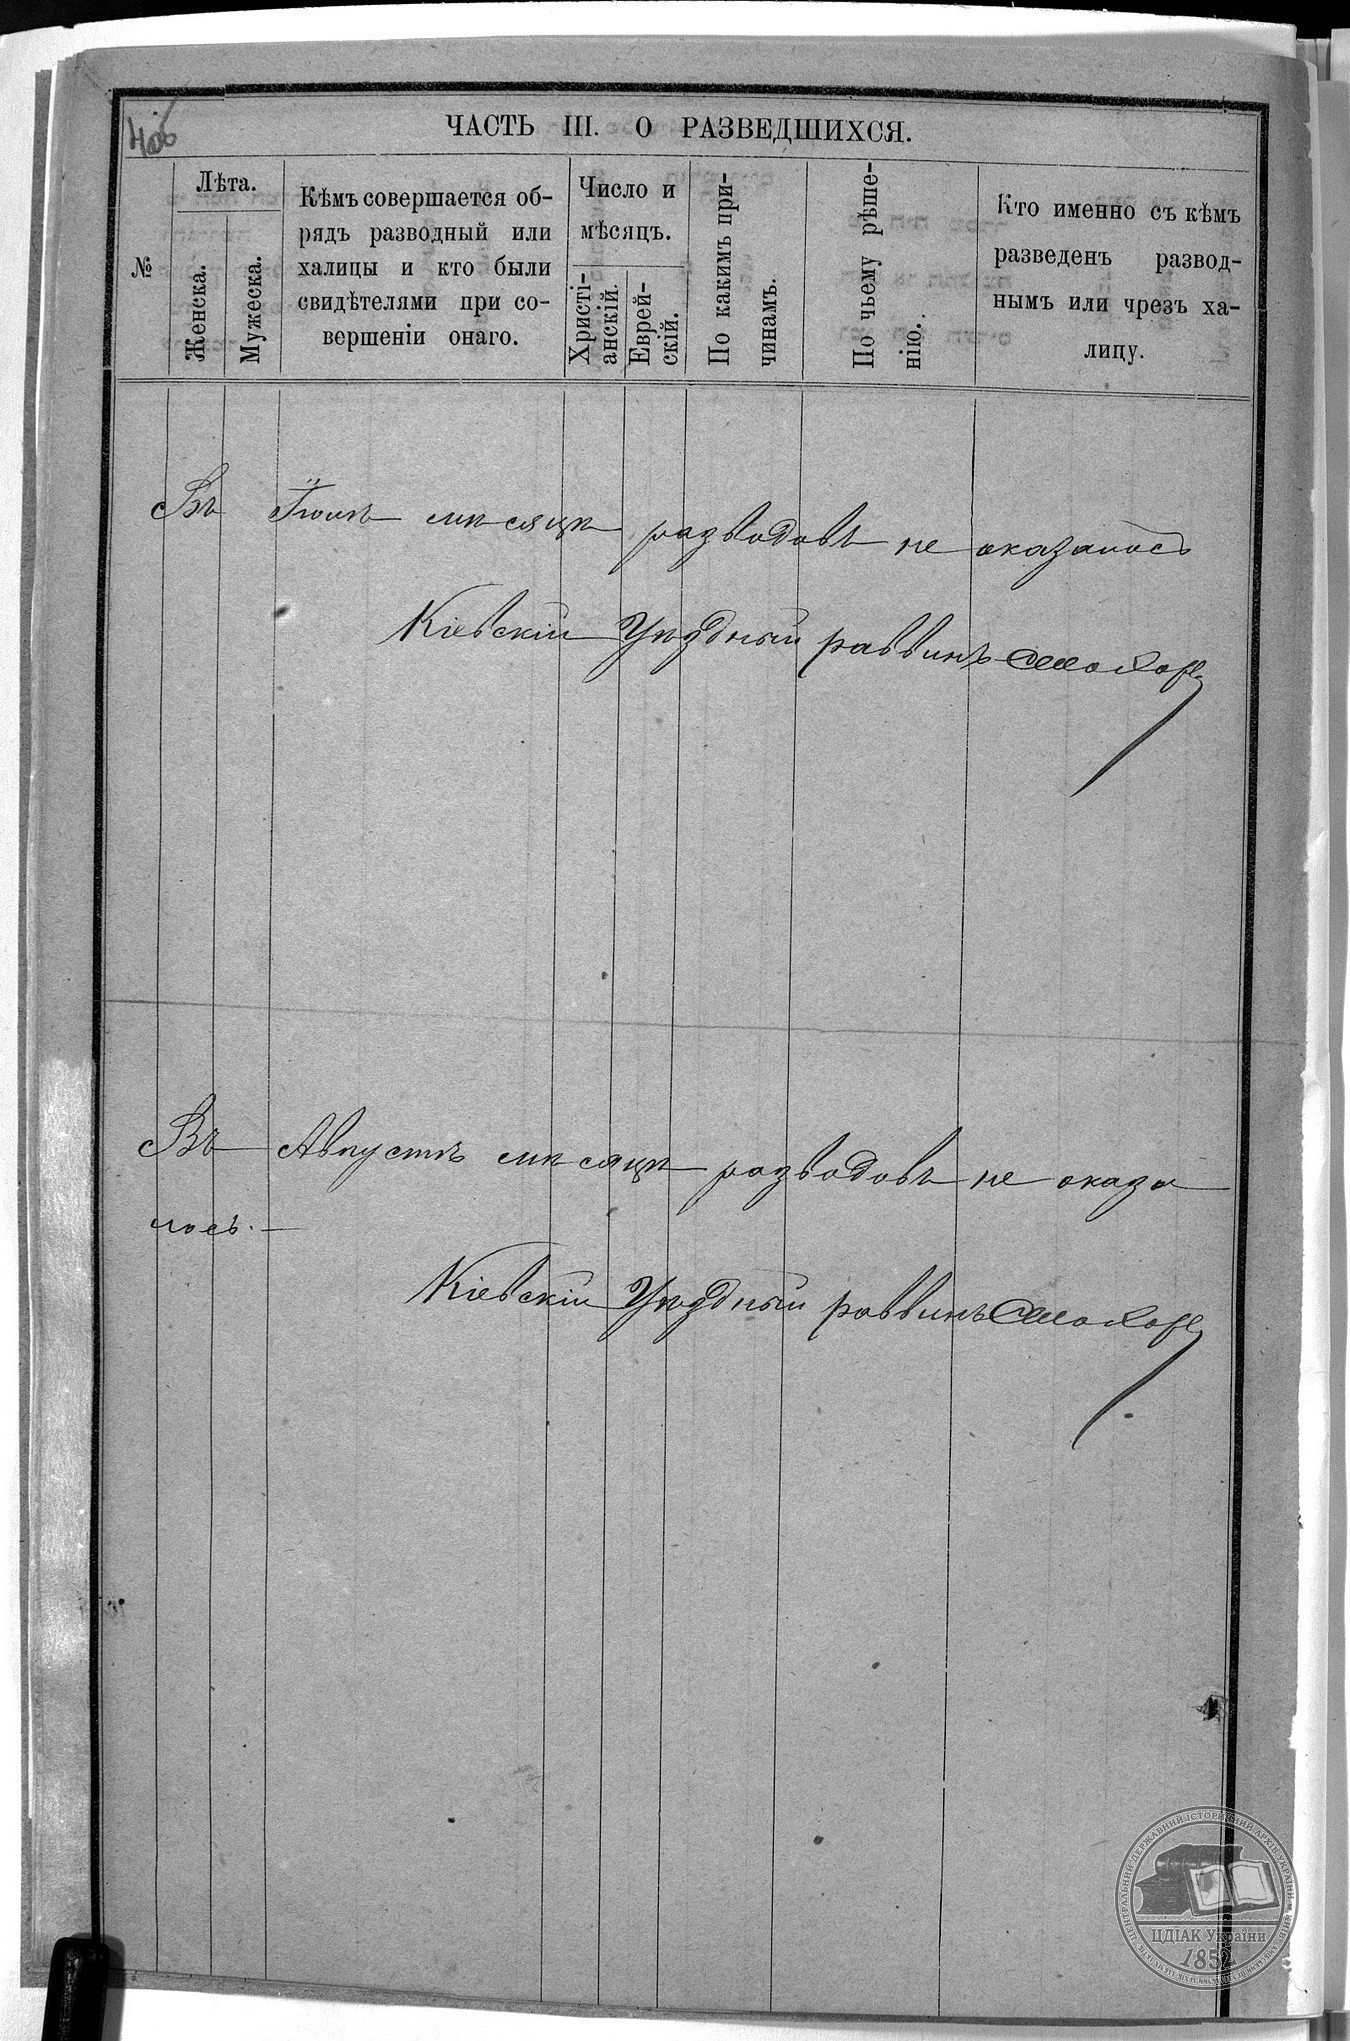 406
ЧАСТЬ III. О РАЗВЕДШИХСЯ.
№
Лѣта.
Женска.
Мужеска.
Кѣмъ совершается об-
рядъ разводный или
халицы и кто были
свидѣтелями при со-
вершеніи онаго.
Число и
мѣсяцъ.
Христі-
анскій.
Еврей-
скій.
По какимъ при-
чинамъ.
По чьему рѣше-
нію.
Кто именно съ кѣмъ
разведенъ развод-
нымъ или чрезъ ха-
лицу.
Въ мѣсяцѣ разводовъ не оказалось
Кіевскій Уѣздный раввинъ
Въ Августѣ мѣсяцѣ разводовъ не оказа
лось. —
Кіевскій Уѣздный раввинъ
ЦЕНТРАЛЬНИЙ ДЕРЖАВНИЙ ІСТОРИЧНИЙ АРХІВ УКРАЇНИ М. КИЇВ
ЦДІАК України
1852